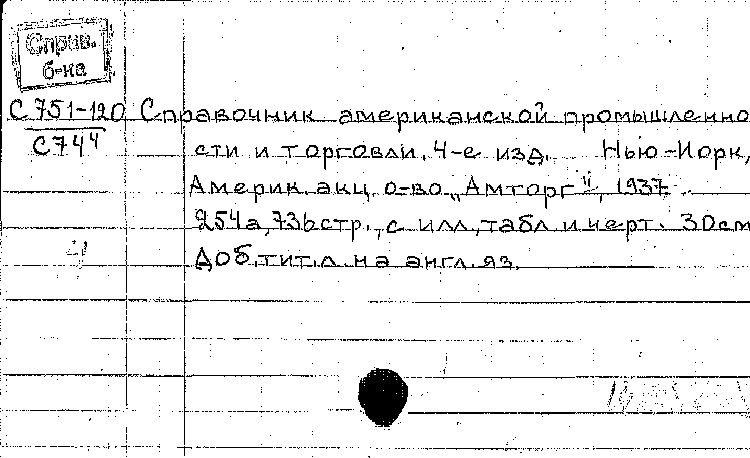 Справ.
б-ка
С751-120 Справочник американской промышленно
С744
сти и торговли. 4-е изд. Нью-Йорк,
Америк. акц. о-во „Амторг", 1937.
254а, 736стр., с илл., табл. и черт. 30см
Доб. тит. л. на англ. яз.